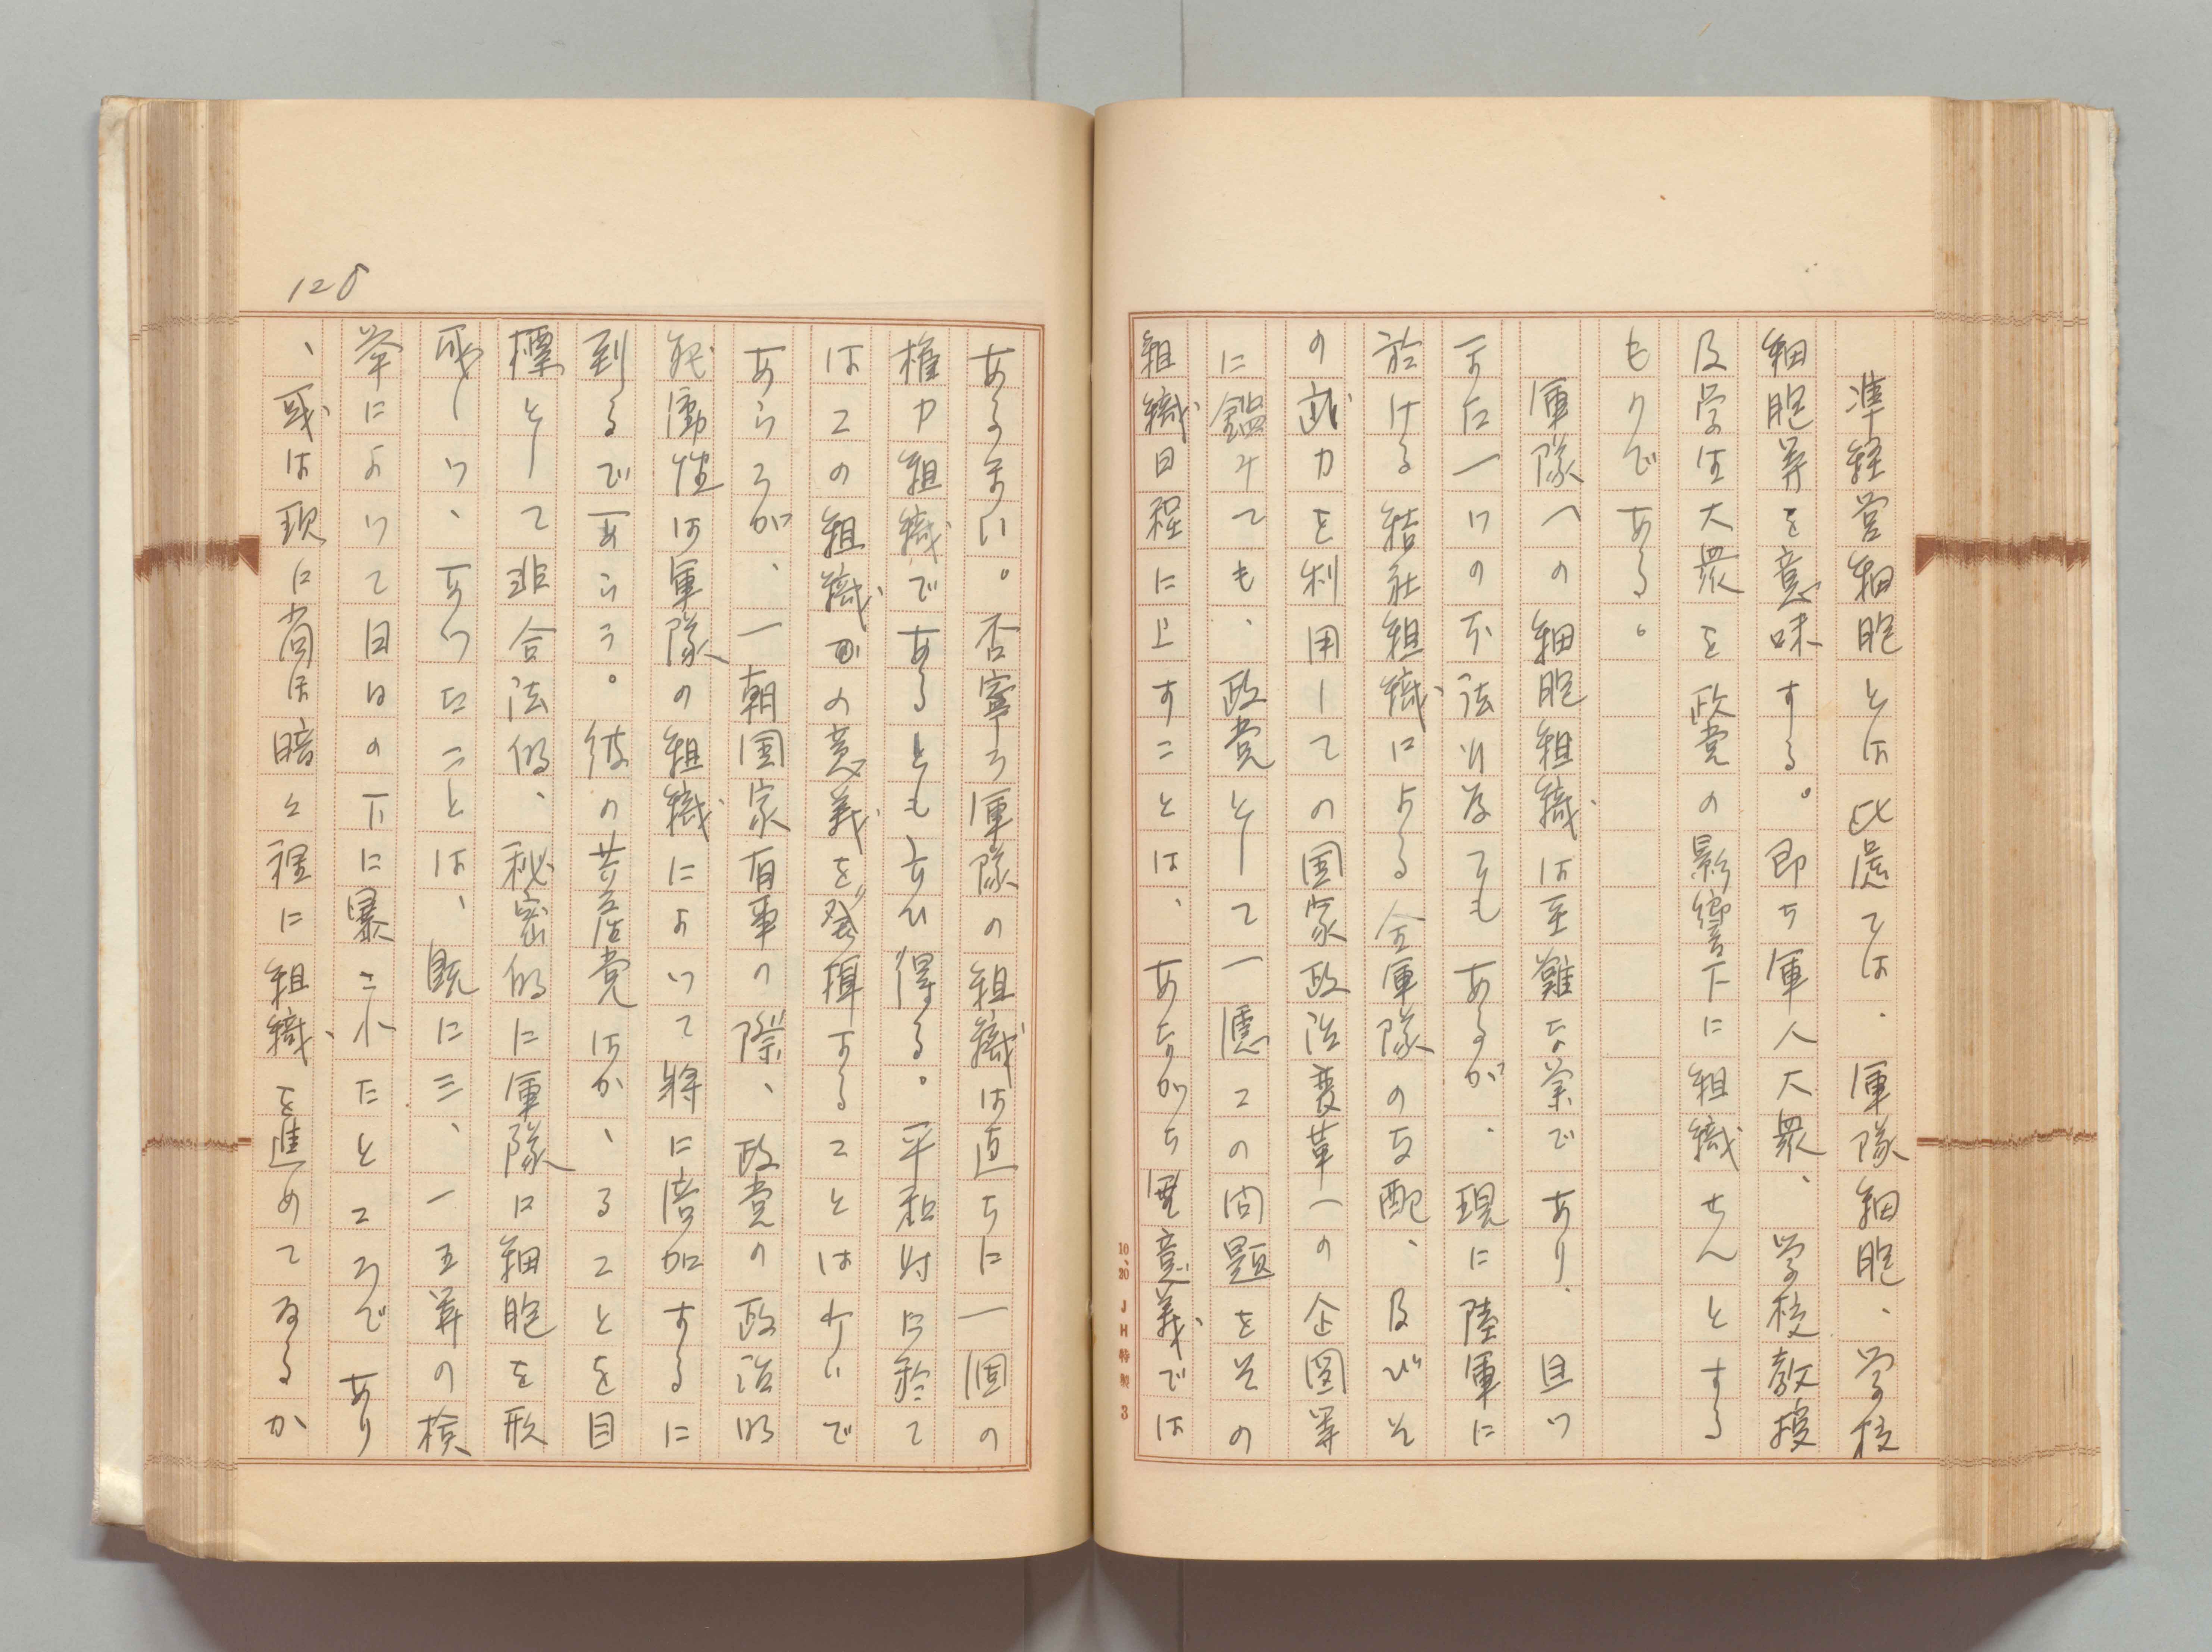 準経営細胞とは此處では、軍隊細胞、学校
細胞等を意味する。即ち軍人大衆、学校教授
及学生大衆を政党の影響下に組織せんとする
ものである。
軍隊への細胞組織は至難な業であり、且つ
また一つの不法行為でもあるが、現に陸軍に
於ける結社組織による全軍隊の支配、及びそ
の武力を利用しての国家政治変革への企図等
に鑑みても、政党として一應この問題をその
組織日程に上すことは、あながち無意義では
10、20 JH特製 3
128
あるまい。否寧ろ軍隊の組織は直ちに一個の
権力組織であるとも云ひ得る。平和時に於て
はこの組織の意義を発揮することは少いで
あらうが、一朝国家有事の際、政党の政治的
能働性は軍隊の組織によつて將に倍加するに
到るであらう。彼の共産党はか、ることを目
標として非合法的、秘密的に軍隊に細胞を形
成しつ、あつたことは、既に三、一五等の検
挙によつて白日の下に暴こふたところであり
、或は現に尚ほ暗々裡に組織を進めてゐるか